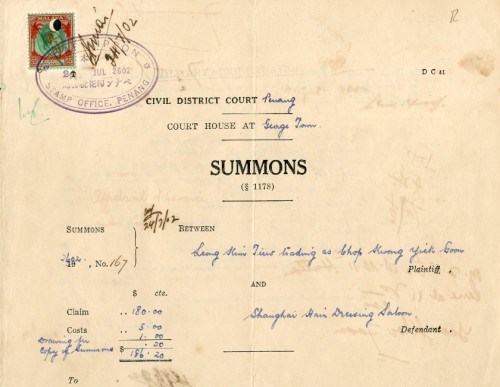 MALAYA
24/7/02
24 JUL 2602
STAMP OFFICE, PENANG
D C 41
CIVIL DISTRICT COURT Penang
COURT HOUSE AT George Town.
SUMMONS
(§ 1178)
24/7/02
SUMMONS
BETWEEN
2602
19 , No. 167
Leong trading as Chop Kwong Yick Soon
Plaintiff .
AND
$ cts.
Claim .. 180.00
Shanghai Hair Dressing Saloon
Costs .. 5.00
Defendant .
Drawing for
1.20
Copy of Summons $ 186.20
To